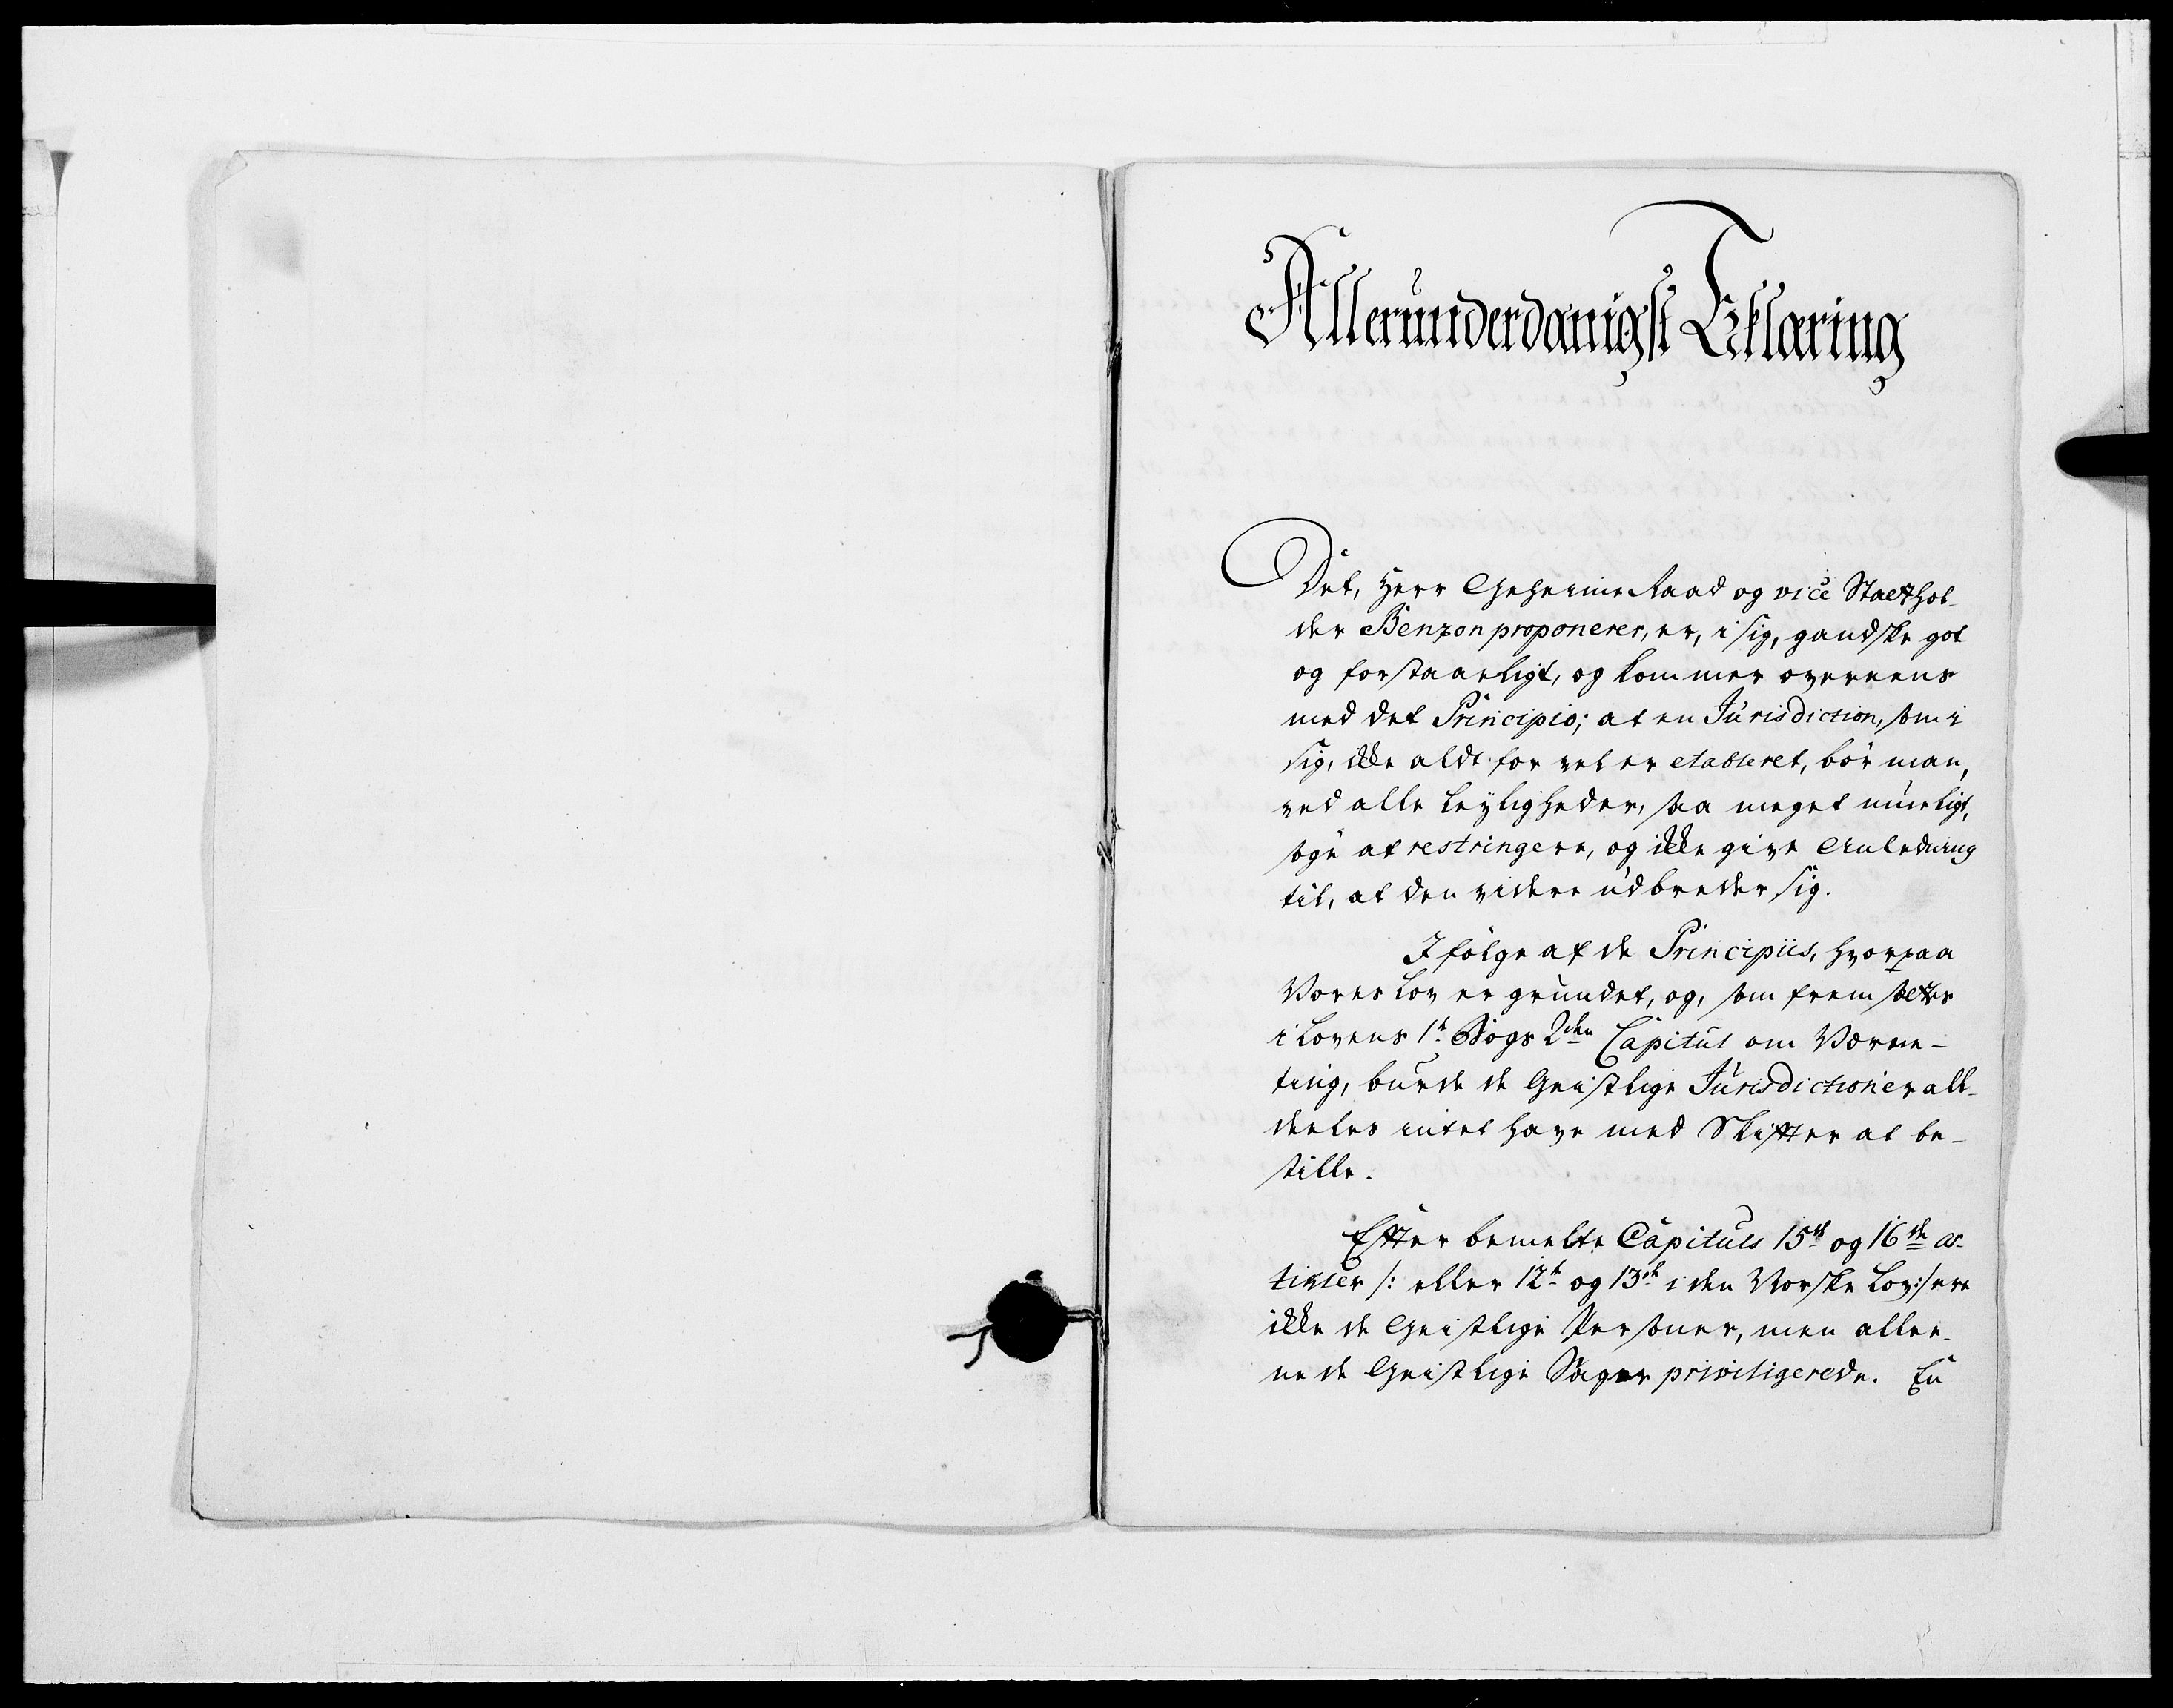 Allerunderdanigst Erklæring
Det, Herr Geheime Raad og vice Statthol-
der Benzon proponerer, er, i sig, gandske got
og forstaaeligt, og kommer overeens
med det Principio; at en Jurisdiction, som i
sig, ikke aldt for vel er etableret, bör man,
ved alle leyligheder, saa meget mueligt,
søge at restringere, og ikke give Anledning
til, at den videre udbreder sig.
I følge af de Principiis, hvorpaa
Vores Lov er grundet, og, som fremsettes
i Lovens 1ste Bogs 2den Capitul om Værne-
ting, burde de Geistlige Jurisdictioner all-
deeles intet have med Skifter at be-
stille.
Efter bemelte Capituls 15de og 16de ar-
tikler /: eller 12te og 13de i den Norske Lov :/ ere
ikke de Geistlige Personer, men allee-
ne de Geistlige Sager priviligerede. En